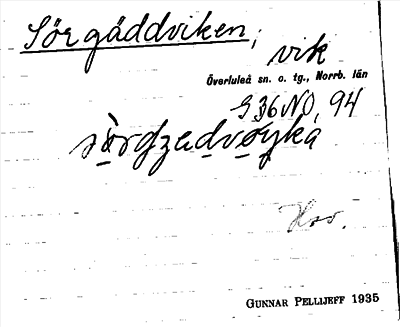 Sörgäddviken, vik
Överluleå sn. o. tg., Norrb. län
G36NO, 94
Hrr.
GUNNAR PELLIJEFF 1935